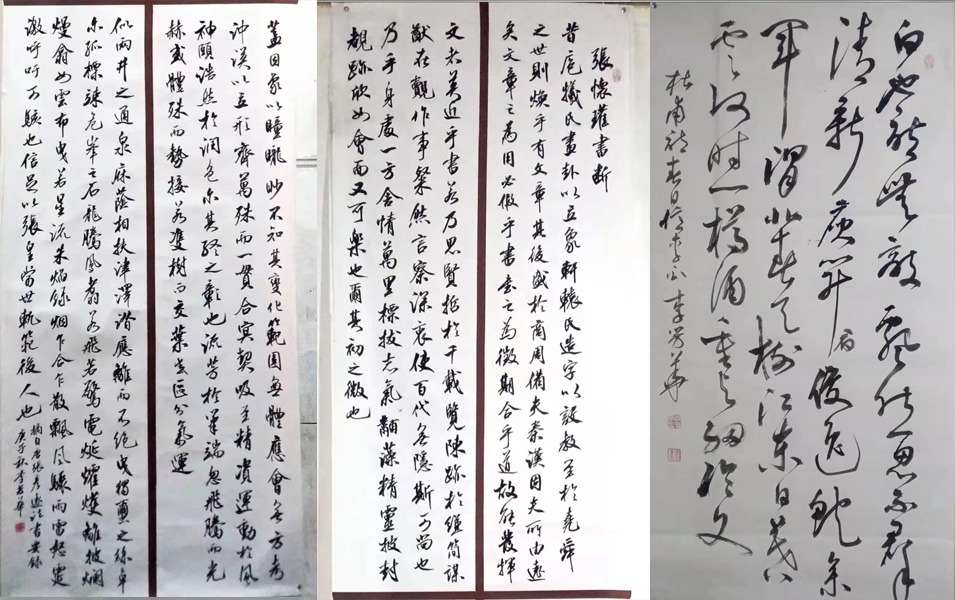 白也詩無敵飄然思不群
清新庾開府俊逸鮑參
軍渭北春天樹江東日暮
雲何時一樽酒重與細論文
杜甫詩春日憶李白 李芳華
張懷瓘書斷
昔庖犧氏畫卦以立象軒轅氏造字以設教至於堯舜
之世則煥乎有文章其後盛於商周備夫秦漢固夫所由遠
矣文章之為用必假乎書書之為徵期合乎道故能發揮
文者莫近乎書若乃思賢哲於千載覽陳跡於縑簡謀
猷在覿作事粲然言察深衷使百代無隱斯可尚也
乃乎身處一方含情萬里標拔志氣黼藻精靈披封
覩跡欣如會面又可樂也爾其初之微也
蓋因象以瞳曨眇不知其變化範圍無體應會無方考
沖漠以立形齊萬殊而一貫合冥契吸至精資運動於風
神頤浩然於潤色爾其終之彰也流芳於筆端忽飛騰而光
赫或體殊而勢接若雙樹而交葉或區分氣運
似兩井之通泉麻蔭相扶津澤潛應離而不絕曳獨繭之絲卓
爾孤標竦危峯之石龍騰鳳翥若飛若驚電烻爚爚離披爛
熳翕如雲布曳若星流朱焰綠烟乍合乍散飄風驟雨雷怒霆
激呼吁可駭也信足以張皇當世軌範後人也
摘自唐張彥遠法書要錄
庚子秋李芳華